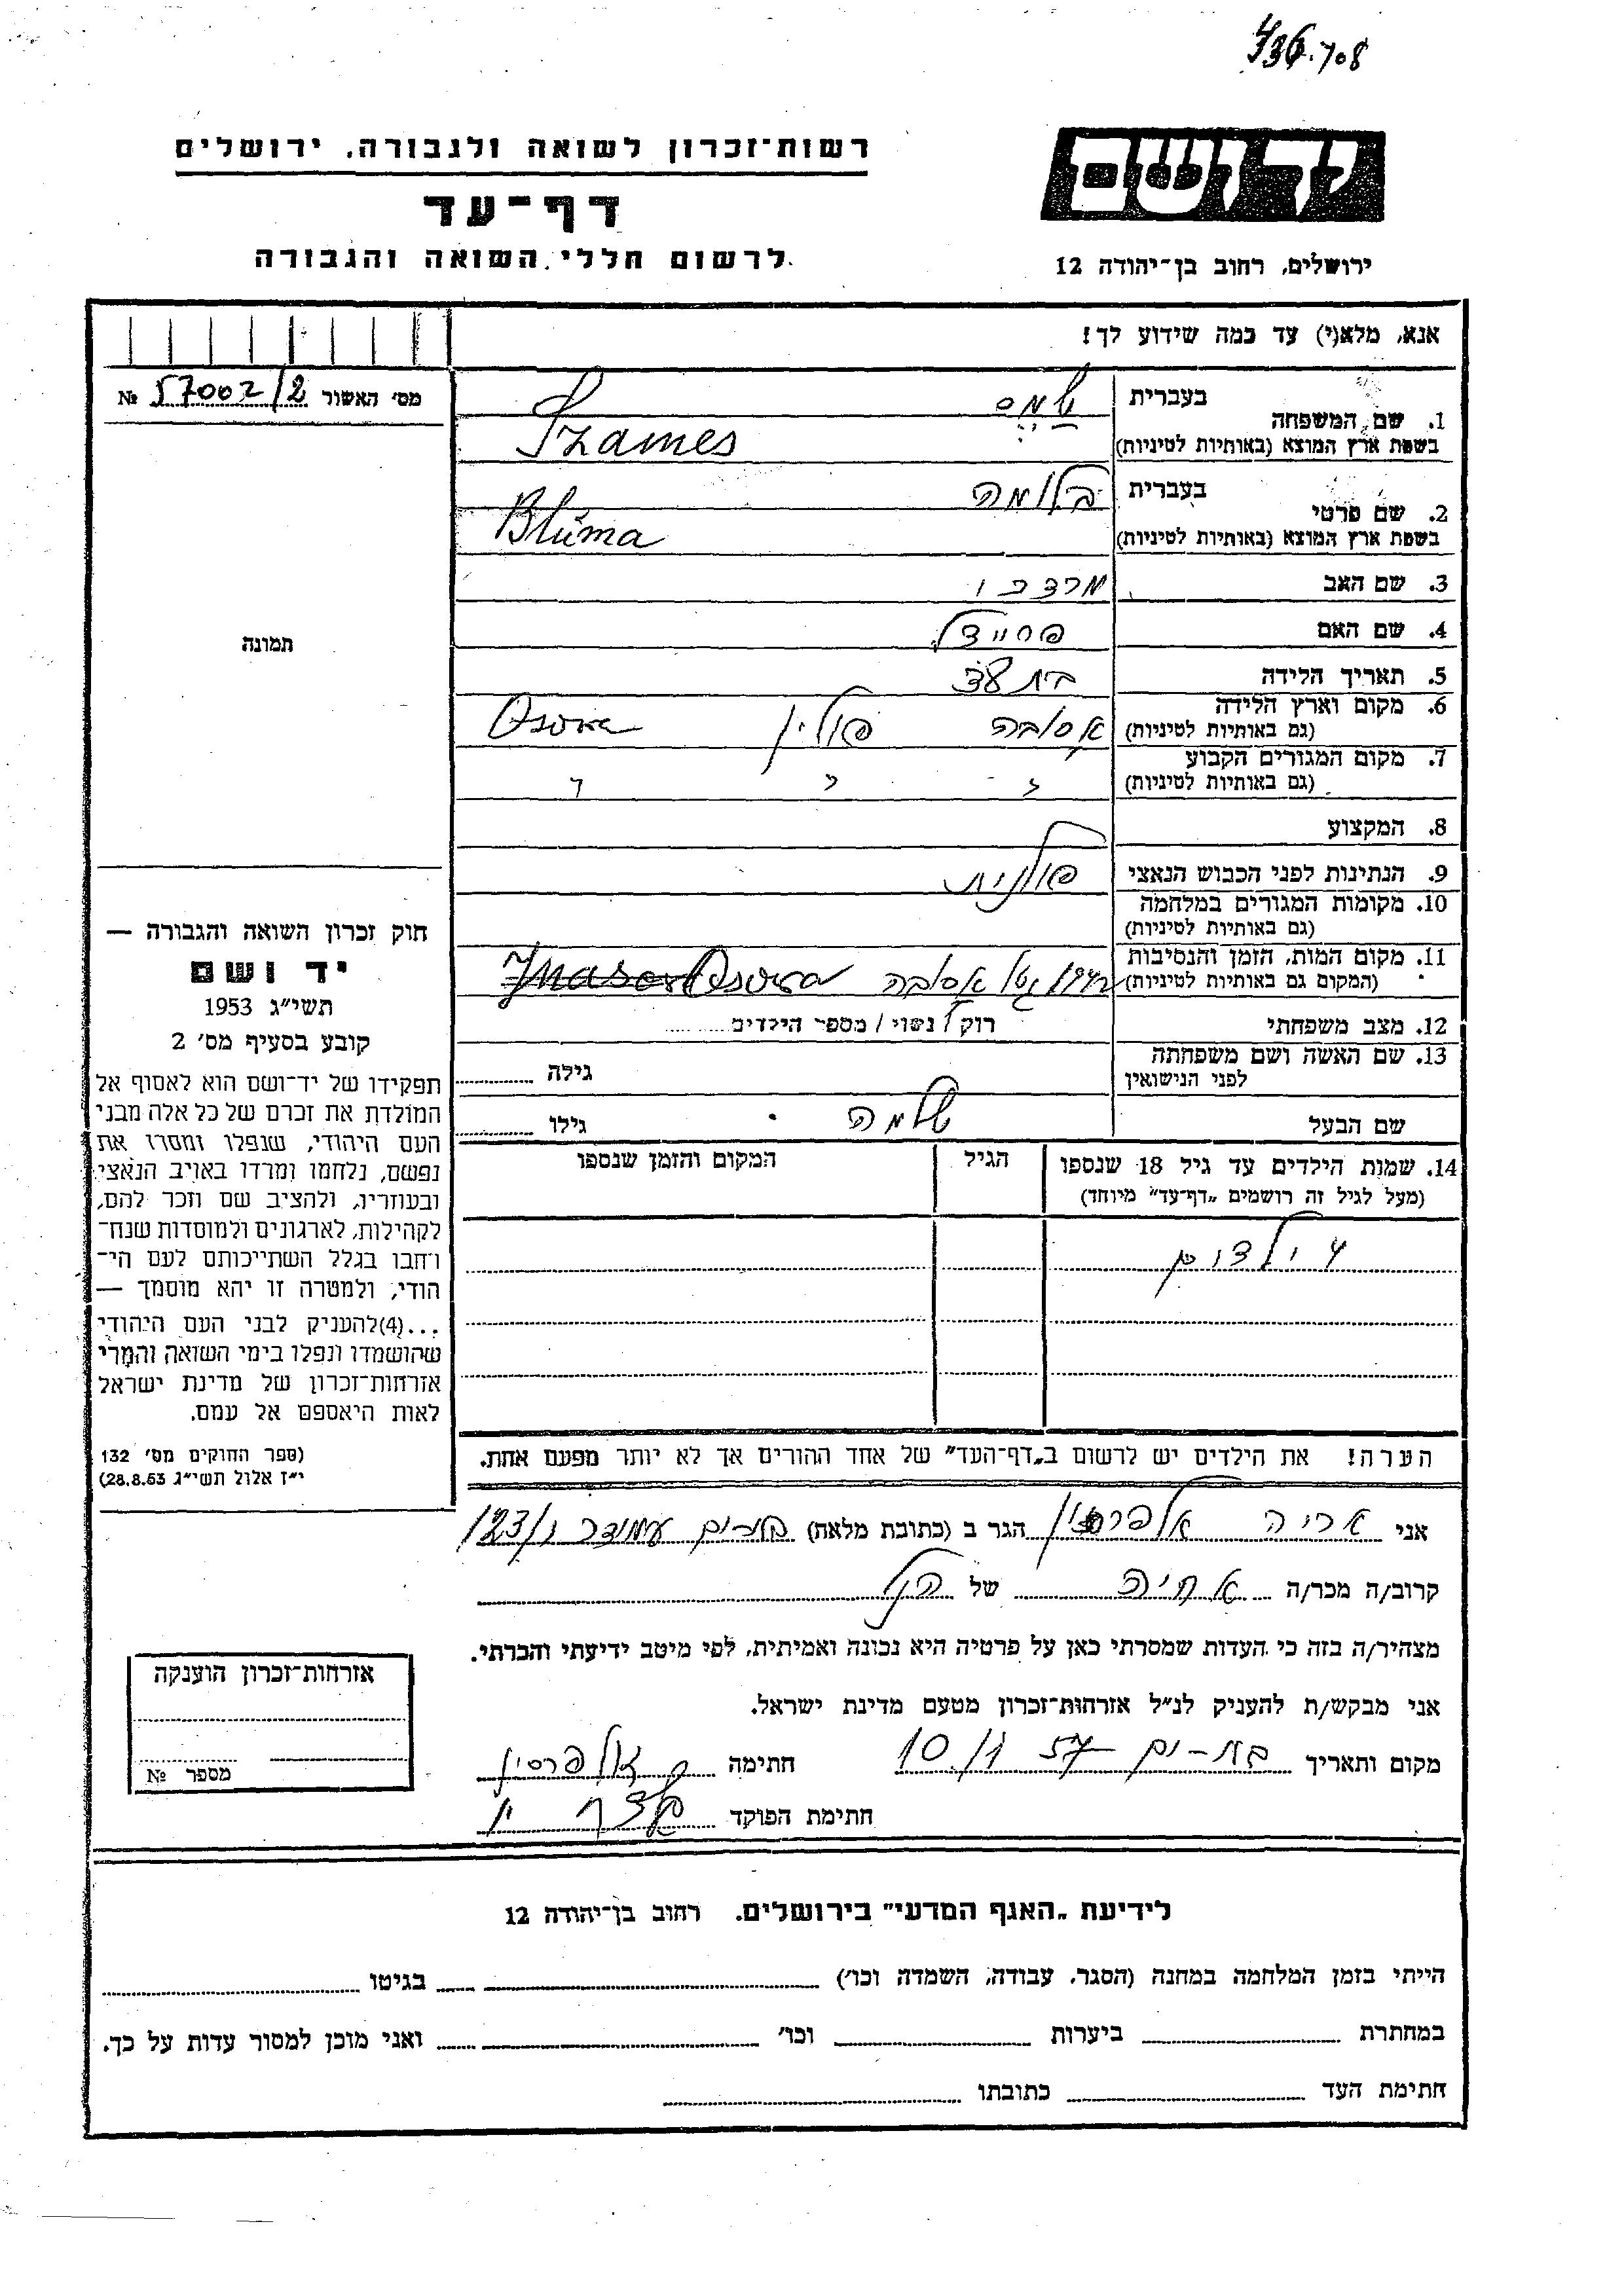 436.708
רשות־זכרון לשואה ולגבורה, ירושלים
דף־עד
לרשום חללי השואה והגבורה
יד ושם
ירושלים, רחוב בן־יהודה 12
אנא, מלא(י) עד כמה שידוע לך!
מס׳ האשור 57002/2 №
1. שם המשפחה בעברית שמס
בשפת ארץ המוצא (באותיות לטיניות) Szames
2. שם פרטי בעברית בלומה
בשפת ארץ המוצא (באותיות לטיניות) Bluma
3. שם האב מרדכי
4. שם האם
5. תאריך הלידה בת
6. מקום וארץ הלידה (גם באותיות לטיניות) אסובה פולין Osowa
7. מקום המגורים הקבוע (גם באותיות לטיניות) " " "
8. המקצוע
9. הנתינות לפני הכבוש הנאצי פולנית
10. מקומות המגורים במלחמה (גם באותיות לטיניות)
11. מקום המות, הזמן והנסיבות (המקום גם באותיות לטיניות) גטו אסובה Osowa
12. מצב משפחתי רווק / נשוי / מספר הילדים
13. שם האשה ושם משפחתה לפני הנישואין גילה
שם הבעל שלמה גילו
14. שמות הילדים עד גיל 18 שנספו הגיל המקום והזמן שנספו
(מעל לגיל זה רושמים „דף־עד” מיוחד)
4 ילדים
הערה! את הילדים יש לרשום ב„דף־העד” של אחד ההורים אך לא יותר מפעם אחת.
תמונה
חוק זכרון השואה והגבורה —
יד ושם
תשי״ג 1953
קובע בסעיף מס׳ 2
תפקידו של יד־ושם הוא לאסוף אל
המולדת את זכרם של כל אלה מבני
העם היהודי, שנפלו ומסרו את
נפשם, נלחמו ומרדו באויב הנאצי
ובעוזריו, ולהציב שם וזכר להם,
לקהילות, לארגונים ולמוסדות שנח־
רבו בגלל השתייכותם לעם הי־
הודי, ולמטרה זו יהא מוסמך —
...(4)להעניק לבני העם היהודי
שהושמדו ונפלו בימי השואה והמרי
אזרחות־זכרון של מדינת ישראל
לאות היאספם אל עמם.
(ספר החוקים מס׳ 132
י״ז אלול תשי״ג 28.8.53)
אני אריה אלפרין הגר ב (כתובת מלאה) בת־ים עמידר 123/
קרוב/ה מכר/ה אחיה של הנ״ל
מצהיר/ה בזה כי העדות שמסרתי כאן על פרטיה היא נכונה ואמיתית, לפי מיטב ידיעתי והכרתי.
אני מבקש/ת להעניק לנ״ל אזרחות־זכרון מטעם מדינת ישראל.
מקום ותאריך בת-ים חתימה
חתימת הפוקד
אזרחות־זכרון הוענקה
מספר №
לידיעת „האגף המדעי” בירושלים. רחוב בן־יהודה 12
הייתי בזמן המלחמה במחנה (הסגר, עבודה, השמדה וכו׳) בגיטו
במחתרת ביערות וכו׳ ואני מוכן למסור עדות על כך.
חתימת העד כתובתו